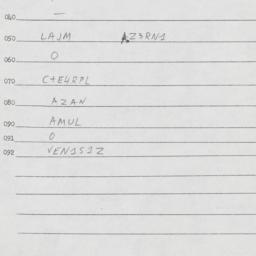 040 —
050 LAJM AZ3RN1
060 O
070 C+E4RPL
080 AZAN
090 AMUL
091 O
092 VEN1S1Z